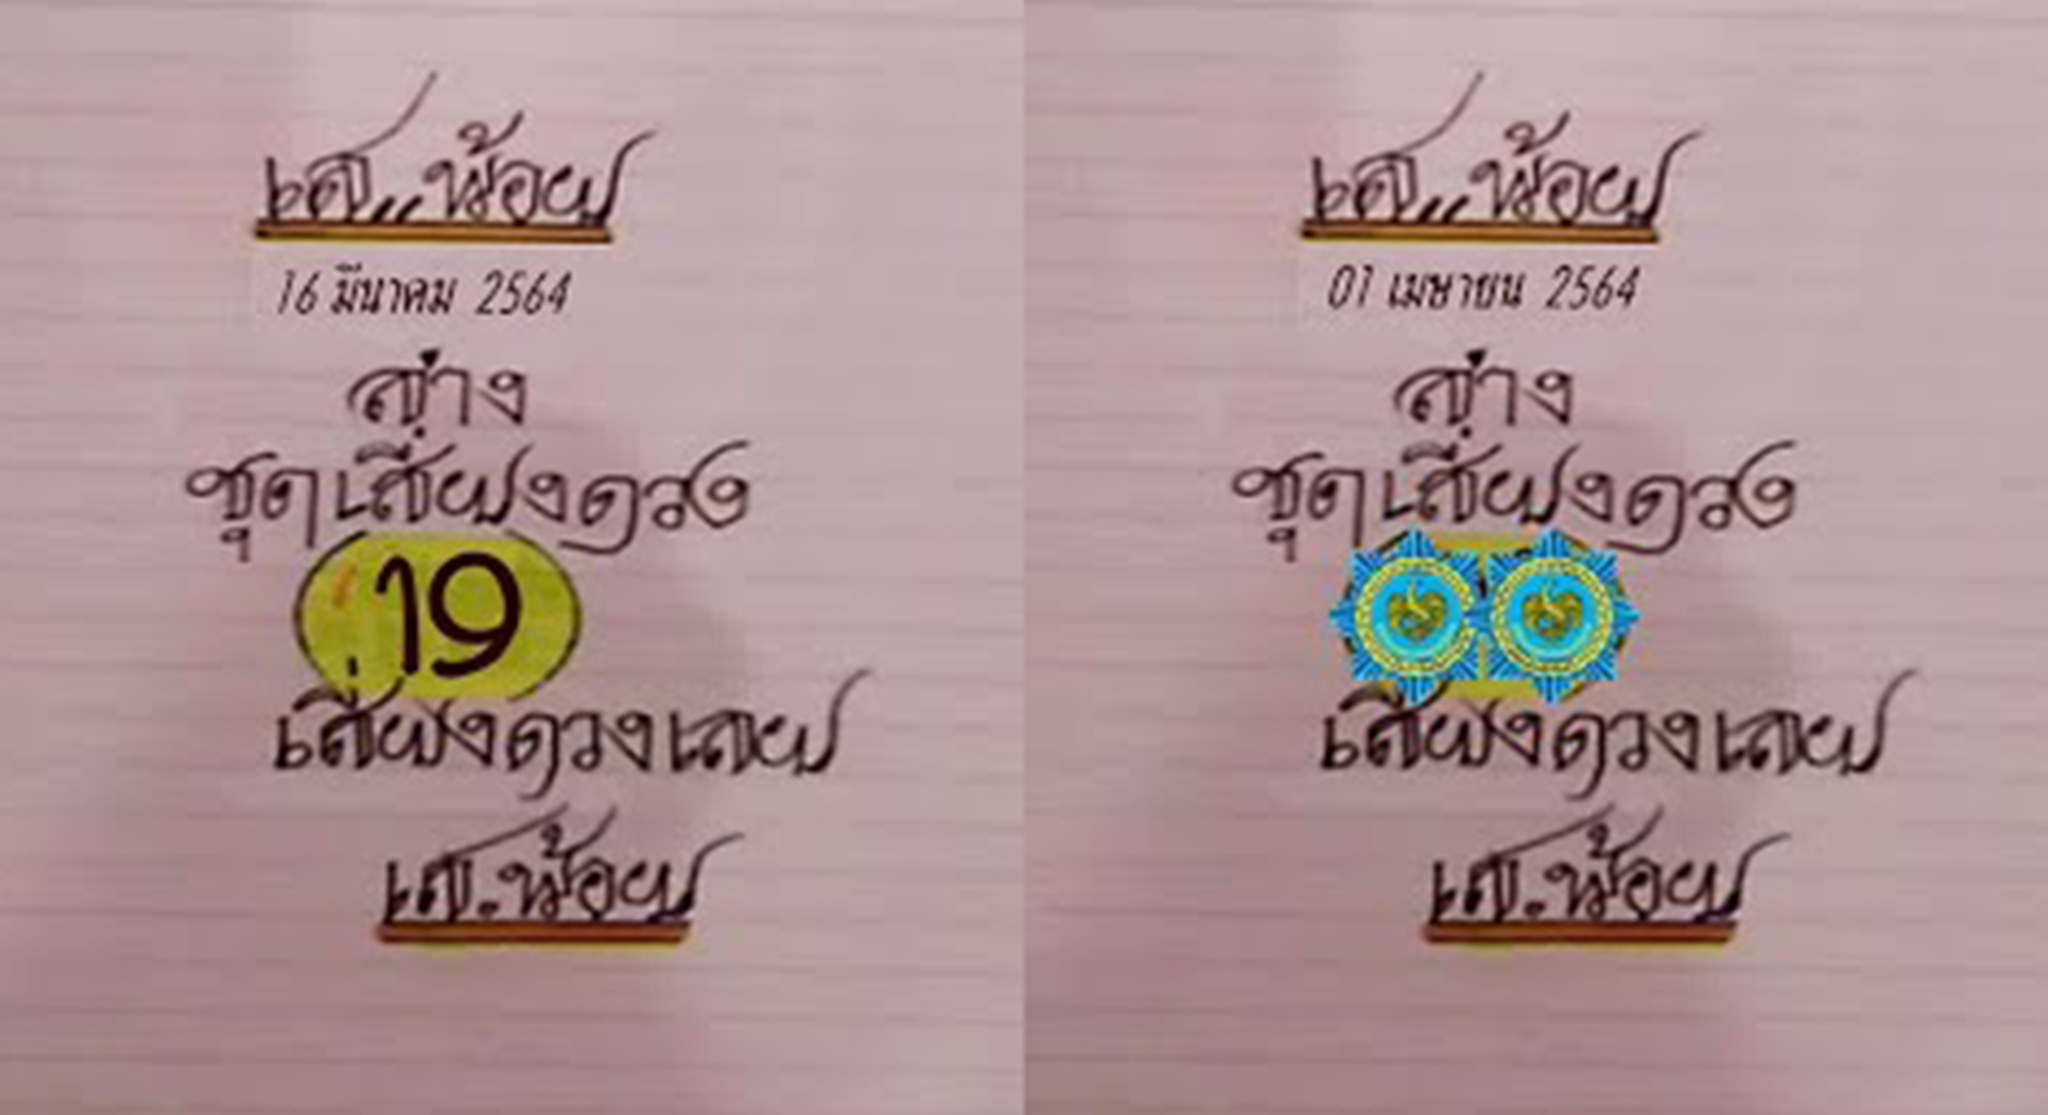 เส...น้อย
16 มีนาคม 2564
ล่าง
ชุดเสี่ยงดวง
19
เสี่ยงดวงเลย
เส.น้อย
เส...น้อย
01 เมษายน 2564
ล่าง
ชุดเสี่ยงดวง
เสี่ยงดวงเลย
เส.น้อย